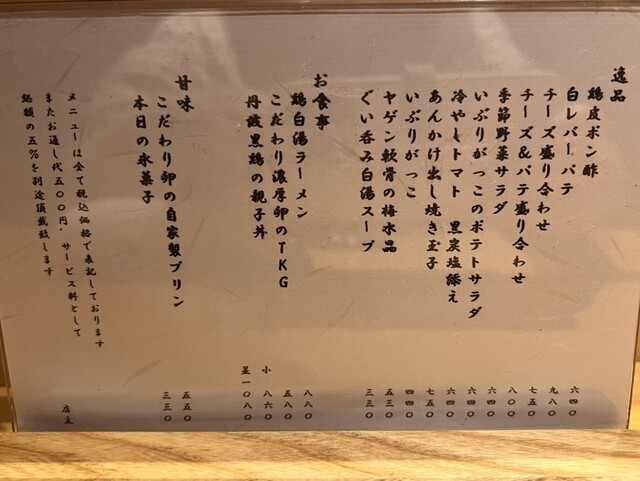 逸品
鶏皮ポン酢 六四〇
白レバーパテ 九八〇
チーズ盛り合わせ 七五〇
チーズ&パテ盛り合わせ 八〇〇
季節野菜サラダ 六四〇
いぶりがっこのポテトサラダ 六四〇
冷やしトマト 黒炭塩添え 六四〇
あんかけ出し焼き玉子 七五〇
いぶりがっこ 四四〇
ヤゲン軟骨の梅水晶 五三〇
ぐい呑み白湯スープ 三三〇
お食事
鶏白湯ラーメン 八八〇
こだわり濃厚卵のTKG 五八〇
丹波黒鶏の親子丼 小 八六〇
並一〇八〇
甘味
こだわり卵の自家製プリン 五五〇
本日の氷菓子 三三〇
メニューは全て税込価格で表記しております
またお通し代五〇〇円、サービス料として
総額の五%を別途頂戴致します
店主